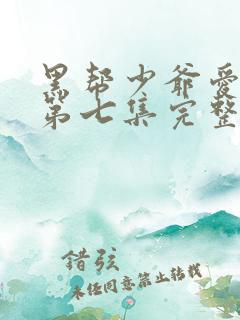 黑帮少爷爱
第七集完整
錯弦
未经同意禁止转载